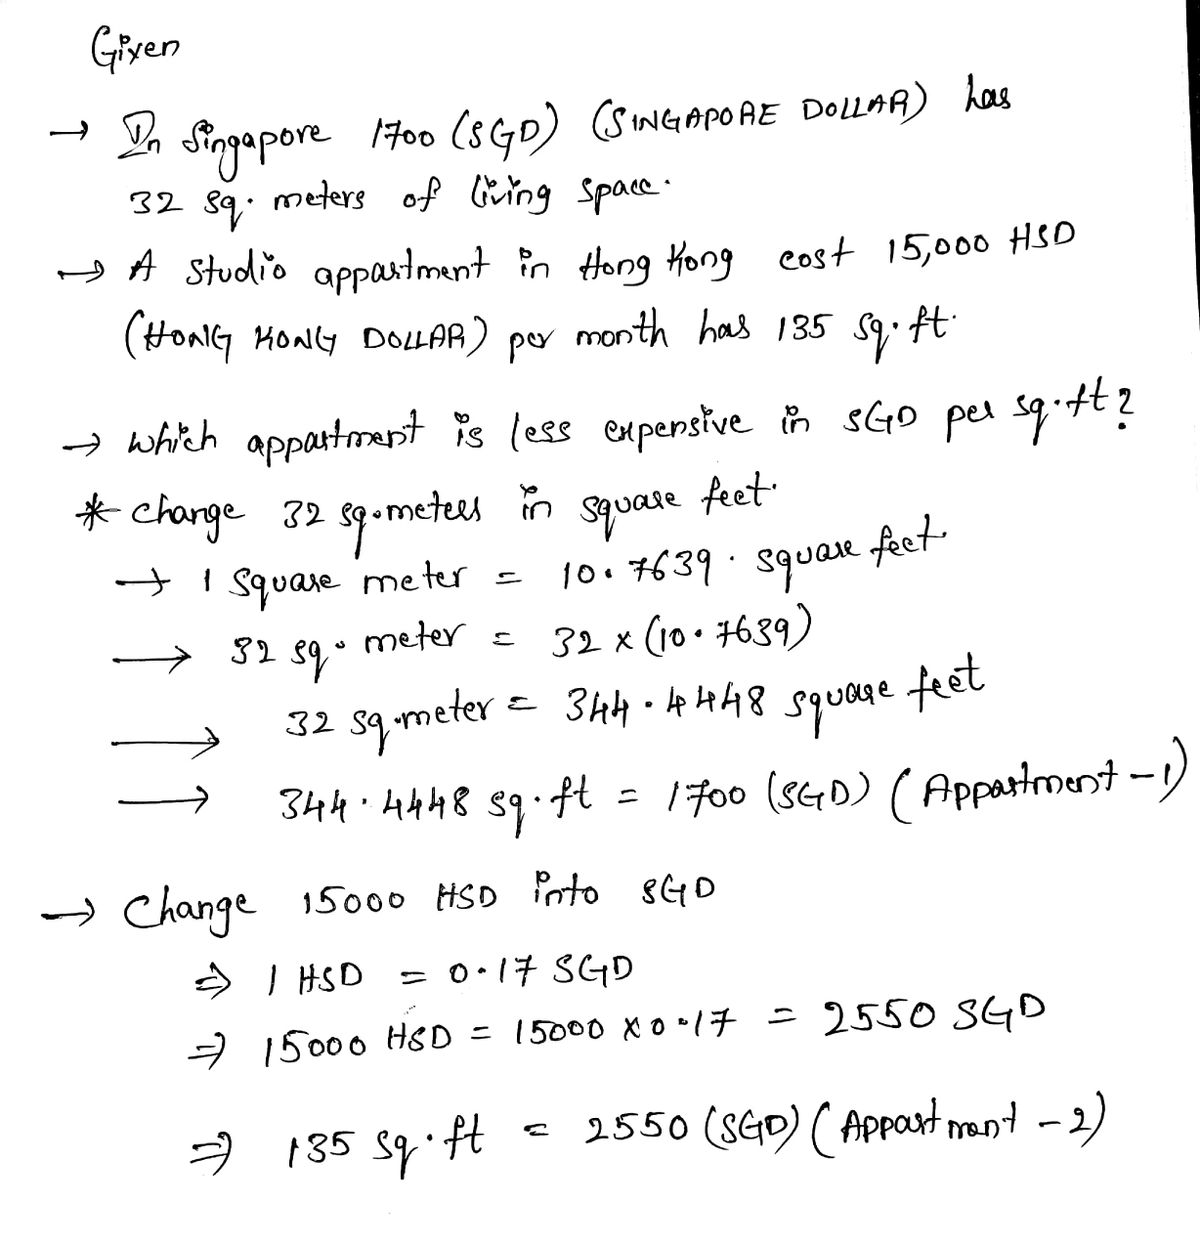 Given
→ In Singapore 1700 (SGD) (SINGAPORE DOLLAR) has
32 sq. meters of living space.
→ A Studio appartment in Hong Kong cost 15,000 HSD
(HONG KONG DOLLAR) per month has 135 sq.ft.
→ which appartment is less expensive in SGD per sq.ft?
* change 32 sq.meters in square feet.
→ 1 Square meter = 10.7639 . square feet.
→ 32 sq. meter = 32 x (10.7639)
→ 32 sq.meter = 344.4448 square feet
→ 344.4448 sq.ft = 1700 (SGD) (Appartment-1)
→ Change 15000 HSD into SGD
⇒ 1 HSD = 0.17 SGD
⇒ 15000 HSD = 15000 x 0.17 = 2550 SGD
⇒ 135 sq.ft = 2550 (SGD) (Appartment-2)